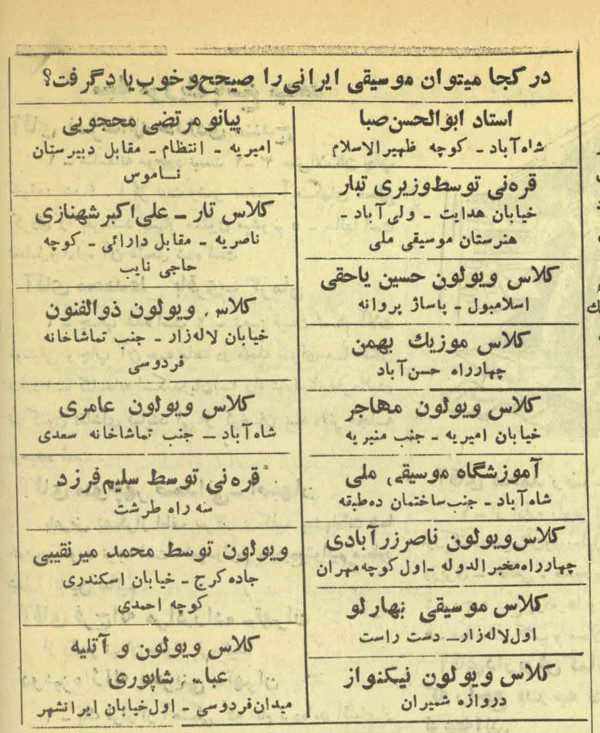 در کجا میتوان موسیقی ایرانی را صحیح و خوب یاد گرفت؟
استاد ابوالحسن صبا
شاه‌آباد - کوچه ظهیرالاسلام
قره‌نی توسط وزیری تبار
خیابان هدایت - ولی‌آباد -
هنرستان موسیقی ملی
کلاس ویولون حسین یاحقی
اسلامبول - پاساژ پروانه
کلاس موزیک بهمن
چهارراه حسن‌آباد
کلاس ویولون مهاجر
خیابان امیریه - جنب منیریه
آموزشگاه موسیقی ملی
شاه‌آباد - جنب ساختمان ده‌طبقه
کلاس ویولون ناصر زرآبادی
چهارراه مخبرالدوله - اول کوچه مهران
کلاس موسیقی بهارلو
اول لاله‌زار - دست راست
کلاس ویولون نیکنواز
دروازه شمیران
پیانو مرتضی محجوبی
امیریه - انتظام - مقابل دبیرستان
ناموس
کلاس تار - علی‌اکبر شهنازی
ناصریه - مقابل دارائی - کوچه
حاجی نایب
کلاس ویولون ذوالفنون
خیابان لاله‌زار - جنب تماشاخانه
فردوسی
کلاس ویولون عامری
شاه‌آباد - جنب تماشاخانه سعدی
قره‌نی توسط سلیم فرزد
سه راه طرشت
ویولون توسط محمد میرنقیبی
جاده کرج - خیابان اسکندری
کوچه احمدی
کلاس ویولون و آتلیه
عباس شاپوری
میدان فردوسی - اول خیابان ایرانشهر